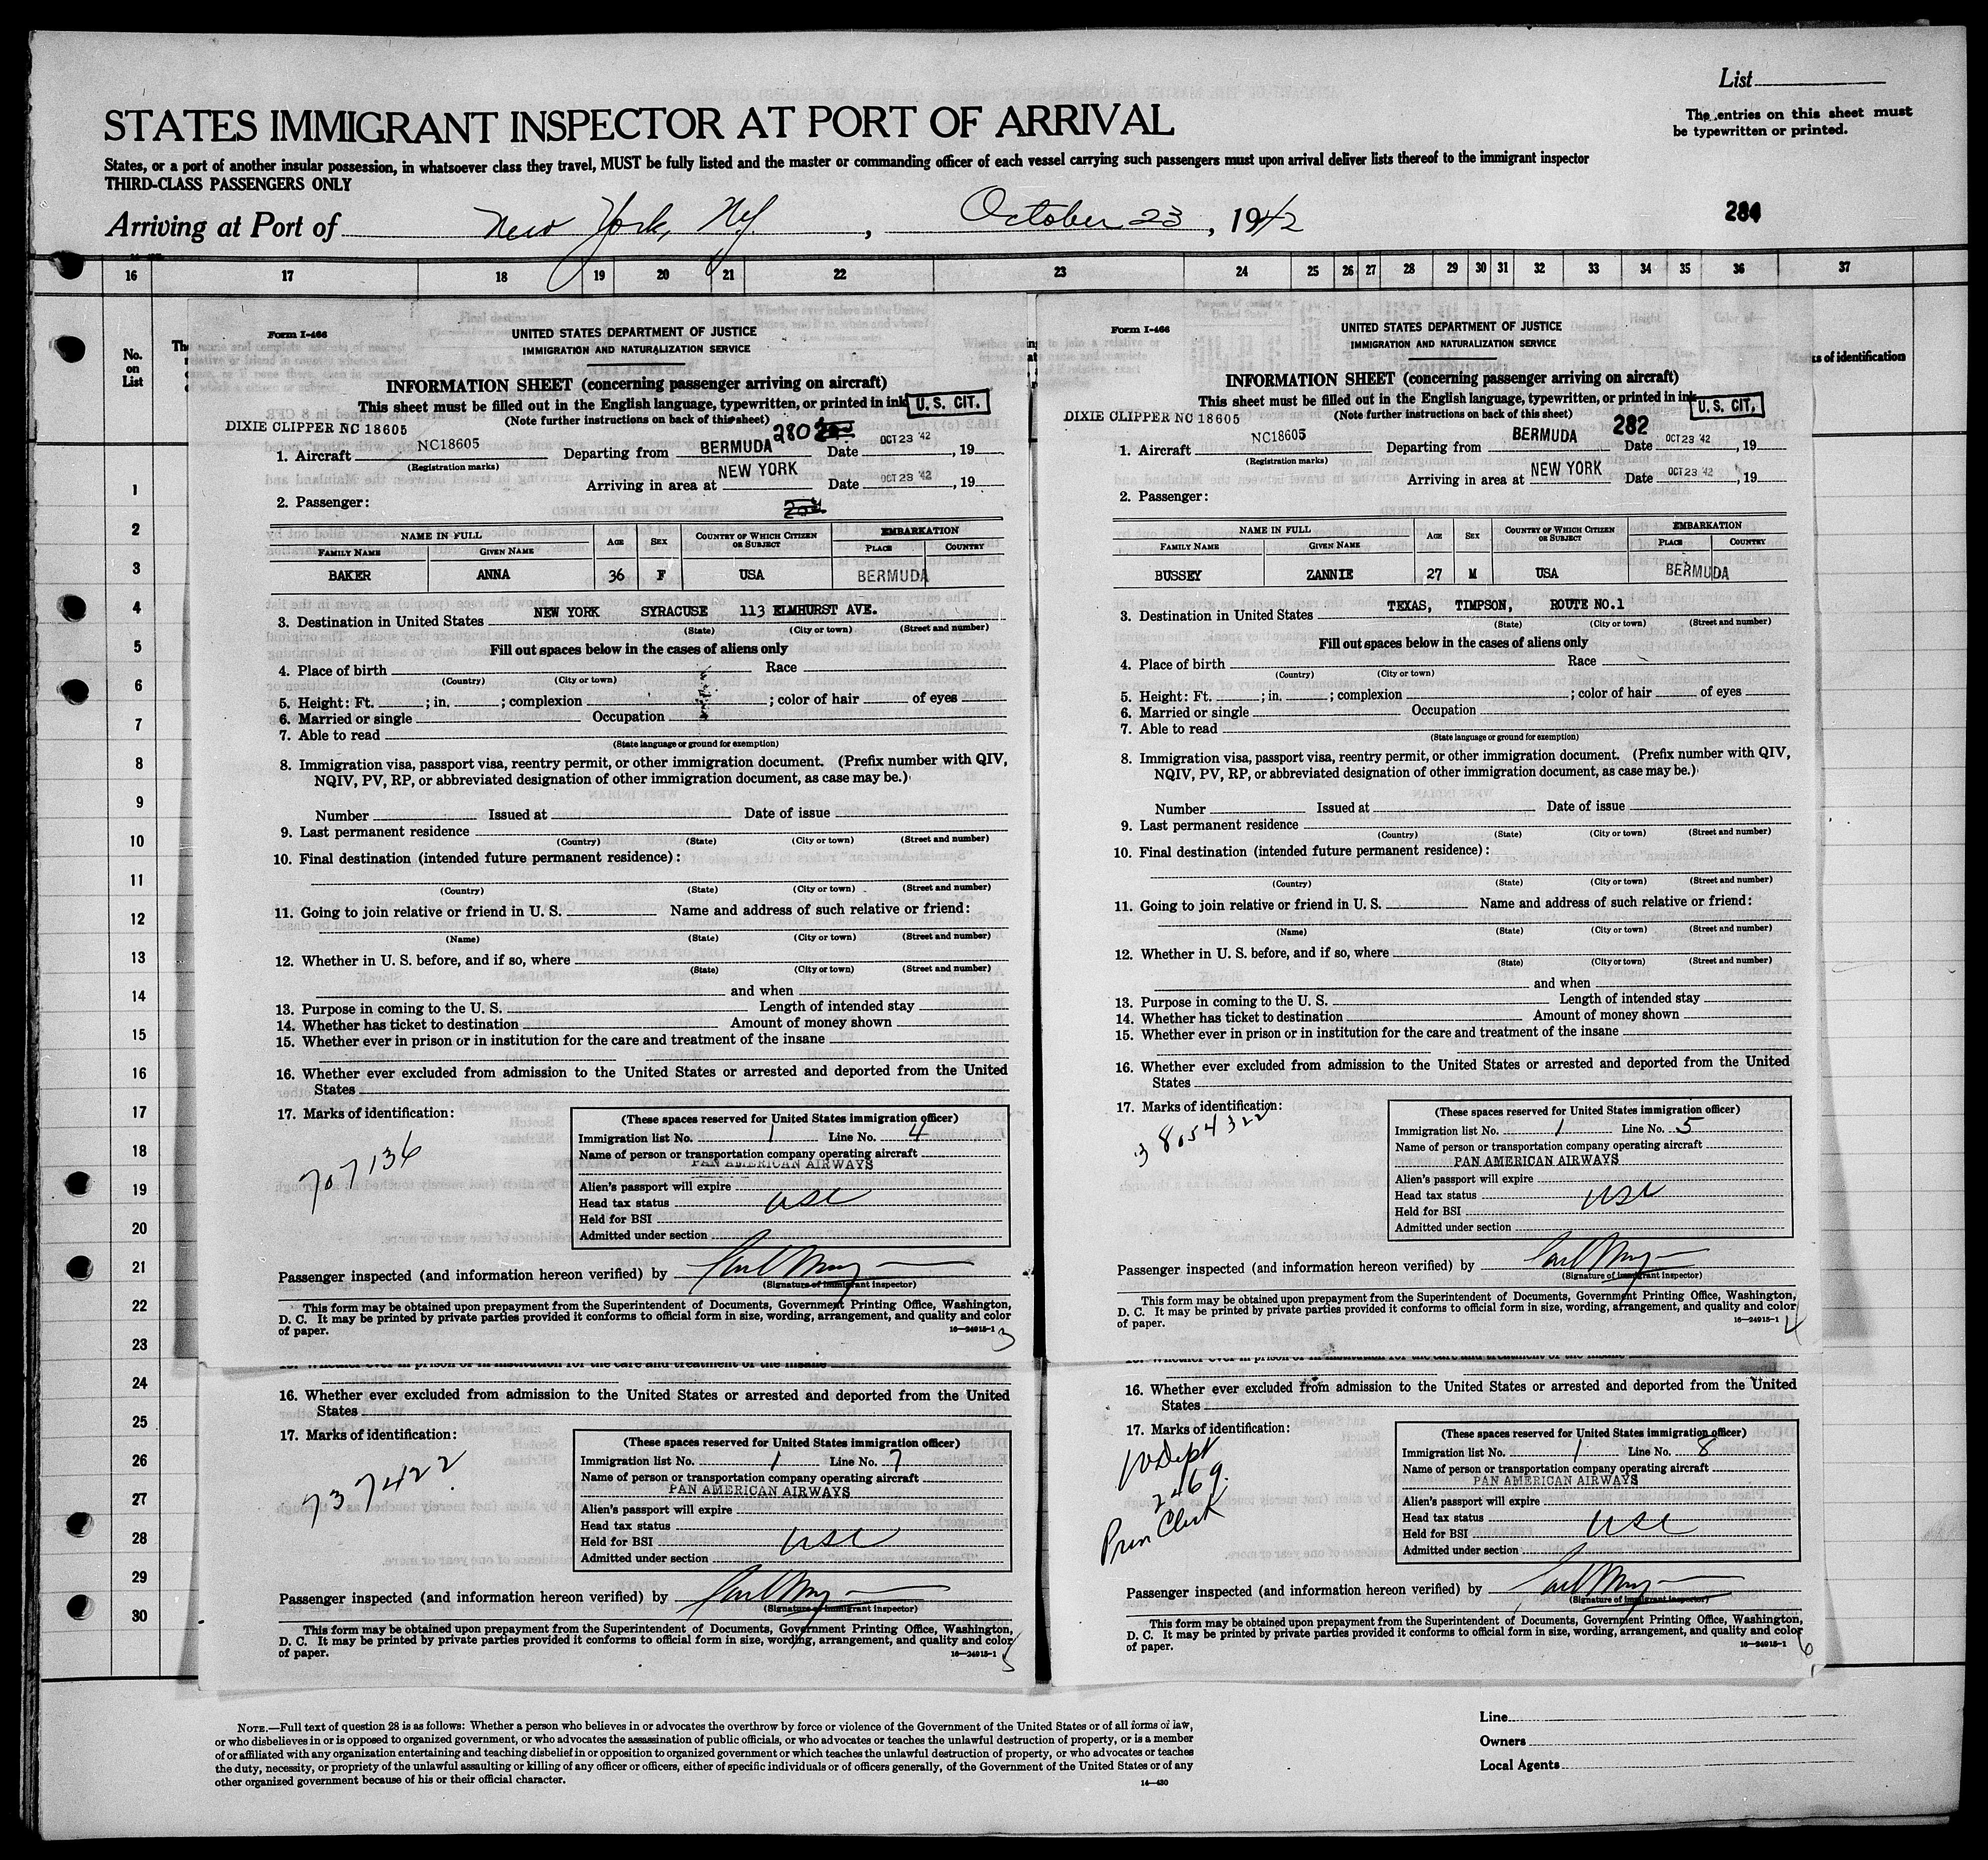 List
STATES IMMIGRANT INSPECTOR AT PORT OF ARRIVAL
The entries on this sheet must
be typewritten or printed.
States, or a port of another insular possession, in whatsoever class they travel, MUST be fully listed and the master or commanding officer of each vessel carrying such passengers must upon arrival deliver lists thereof to the immigrant inspector
THIRD-CLASS PASSENGERS ONLY
Arriving at Port of New York, NY. , October 23, 1942
16 17 18 19 20 21 22 23 24 25 26 27 28 29 30 31 32 33 34 35 36 37
No.
on
List
1
2
3
4
5
6
7
8
9
10
11
12
13
14
15
16
17
18
19
20
21
22
23
24
25
26
27
28
29
30
Form I-466
UNITED STATES DEPARTMENT OF JUSTICE
IMMIGRATION AND NATURALIZATION SERVICE
INFORMATION SHEET (concerning passenger arriving on aircraft)
This sheet must be filled out in the English language, typewritten, or printed in ink
U. S. CIT.
DIXIE CLIPPER NC 18605
(Note further instructions on back of this sheet)
280
1. Aircraft NC18605 Departing from BERMUDA Date OCT 23 '42, 19
(Registration marks)
Arriving in area at NEW YORK Date OCT 23 '42, 19
2. Passenger:
NAME IN FULL AGE SEX COUNTRY OF WHICH CITIZEN OR SUBJECT EMBARKATION
FAMILY NAME GIVEN NAME PLACE COUNTRY
BAKER ANNA 36 F USA BERMUDA
NEW YORK SYRACUSE 113 ELMHURST AVE.
3. Destination in United States
(State) (City or town) (Street and number)
Fill out spaces below in the cases of aliens only
4. Place of birth Race
(Country) (City or town)
5. Height: Ft. ; in. ; complexion ; color of hair of eyes
6. Married or single Occupation
7. Able to read
(State language or ground for exemption)
8. Immigration visa, passport visa, reentry permit, or other immigration document. (Prefix number with QIV,
NQIV, PV, RP, or abbreviated designation of other immigration document, as case may be.)
Number Issued at Date of issue
9. Last permanent residence
(Country) (State) (City or town) (Street and number)
10. Final destination (intended future permanent residence):
(Country) (State) (City or town) (Street and number)
11. Going to join relative or friend in U. S. Name and address of such relative or friend:
(Name) (State) (City or town) (Street and number)
12. Whether in U. S. before, and if so, where
(State) (City or town) (Street and number)
and when
13. Purpose in coming to the U. S. Length of intended stay
14. Whether has ticket to destination Amount of money shown
15. Whether ever in prison or in institution for the care and treatment of the insane
16. Whether ever excluded from admission to the United States or arrested and deported from the United
States
17. Marks of identification:
707136
(These spaces reserved for United States immigration officer)
Immigration list No. 1 Line No. 4
Name of person or transportation company operating aircraft
PAN AMERICAN AIRWAYS
Alien's passport will expire
Head tax status USC
Held for BSI
Admitted under section
Passenger inspected (and information hereon verified) by
(Signature of immigrant inspector)
This form may be obtained upon prepayment from the Superintendent of Documents, Government Printing Office, Washington,
D. C. It may be printed by private parties provided it conforms to official form in size, wording, arrangement, and quality and color
of paper.
16—24915-1
3
Form I-466
UNITED STATES DEPARTMENT OF JUSTICE
IMMIGRATION AND NATURALIZATION SERVICE
INFORMATION SHEET (concerning passenger arriving on aircraft)
This sheet must be filled out in the English language, typewritten, or printed in ink
U. S. CIT.
DIXIE CLIPPER NC 18605
(Note further instructions on back of this sheet)
282
1. Aircraft NC18605 Departing from BERMUDA Date OCT 23 '42, 19
(Registration marks)
Arriving in area at NEW YORK Date OCT 23 '42, 19
2. Passenger:
NAME IN FULL AGE SEX COUNTRY OF WHICH CITIZEN OR SUBJECT EMBARKATION
FAMILY NAME GIVEN NAME PLACE COUNTRY
BUSSEY ZANNIE 27 M USA BERMUDA
TEXAS, TIMPSON, ROUTE NO.1
3. Destination in United States
(State) (City or town) (Street and number)
Fill out spaces below in the cases of aliens only
4. Place of birth Race
(Country) (City or town)
5. Height: Ft. ; in. ; complexion ; color of hair of eyes
6. Married or single Occupation
7. Able to read
(State language or ground for exemption)
8. Immigration visa, passport visa, reentry permit, or other immigration document. (Prefix number with QIV,
NQIV, PV, RP, or abbreviated designation of other immigration document, as case may be.)
Number Issued at Date of issue
9. Last permanent residence
(Country) (State) (City or town) (Street and number)
10. Final destination (intended future permanent residence):
(Country) (State) (City or town) (Street and number)
11. Going to join relative or friend in U. S. Name and address of such relative or friend:
(Name) (State) (City or town) (Street and number)
12. Whether in U. S. before, and if so, where
(State) (City or town) (Street and number)
and when
13. Purpose in coming to the U. S. Length of intended stay
14. Whether has ticket to destination Amount of money shown
15. Whether ever in prison or in institution for the care and treatment of the insane
16. Whether ever excluded from admission to the United States or arrested and deported from the United
States
17. Marks of identification:
38054322
(These spaces reserved for United States immigration officer)
Immigration list No. 1 Line No. 5
Name of person or transportation company operating aircraft
PAN AMERICAN AIRWAYS
Alien's passport will expire
Head tax status USC
Held for BSI
Admitted under section
Passenger inspected (and information hereon verified) by
(Signature of immigrant inspector)
This form may be obtained upon prepayment from the Superintendent of Documents, Government Printing Office, Washington,
D. C. It may be printed by private parties provided it conforms to official form in size, wording, arrangement, and quality and color
of paper.
16—24915-1
4
ks of identification
16. Whether ever excluded from admission to the United States or arrested and deported from the United
States
17. Marks of identification:
737422
(These spaces reserved for United States immigration officer)
Immigration list No. 1 Line No. 7
Name of person or transportation company operating aircraft
PAN AMERICAN AIRWAYS
Alien's passport will expire
Head tax status
Held for BSI USC
Admitted under section
Passenger inspected (and information hereon verified) by
(Signature of immigrant inspector)
This form may be obtained upon prepayment from the Superintendent of Documents, Government Printing Office, Washington,
D. C. It may be printed by private parties provided it conforms to official form in size, wording, arrangement, and quality and color
of paper.
16—24915-1
5
16. Whether ever excluded from admission to the United States or arrested and deported from the United
States
17. Marks of identification:
Dept
2469.
Clerk
(These spaces reserved for United States immigration officer)
Immigration list No. 1 Line No. 8
Name of person or transportation company operating aircraft
PAN AMERICAN AIRWAYS
Alien's passport will expire
Head tax status USC
Held for BSI
Admitted under section
Passenger inspected (and information hereon verified) by
(Signature of immigrant inspector)
This form may be obtained upon prepayment from the Superintendent of Documents, Government Printing Office, Washington,
D. C. It may be printed by private parties provided it conforms to official form in size, wording, arrangement, and quality and color
of paper.
16—24915-1
6
NOTE.—Full text of question 28 is as follows: Whether a person who believes in or advocates the overthrow by force or violence of the Government of the United States or of all forms of law,
or who disbelieves in or is opposed to organized government, or who advocates the assassination of public officials, or who advocates or teaches the unlawful destruction of property, or is a member
of or affiliated with any organization entertaining and teaching disbelief in or opposition to organized government or which teaches the unlawful destruction of property, or who advocates or teaches
the duty, necessity, or propriety of the unlawful assaulting or killing of any officer or officers, either of specific individuals or of officers generally, of the Government of the United States or of any
other organized government because of his or their official character.
14—430
Line
Owners
Local Agents